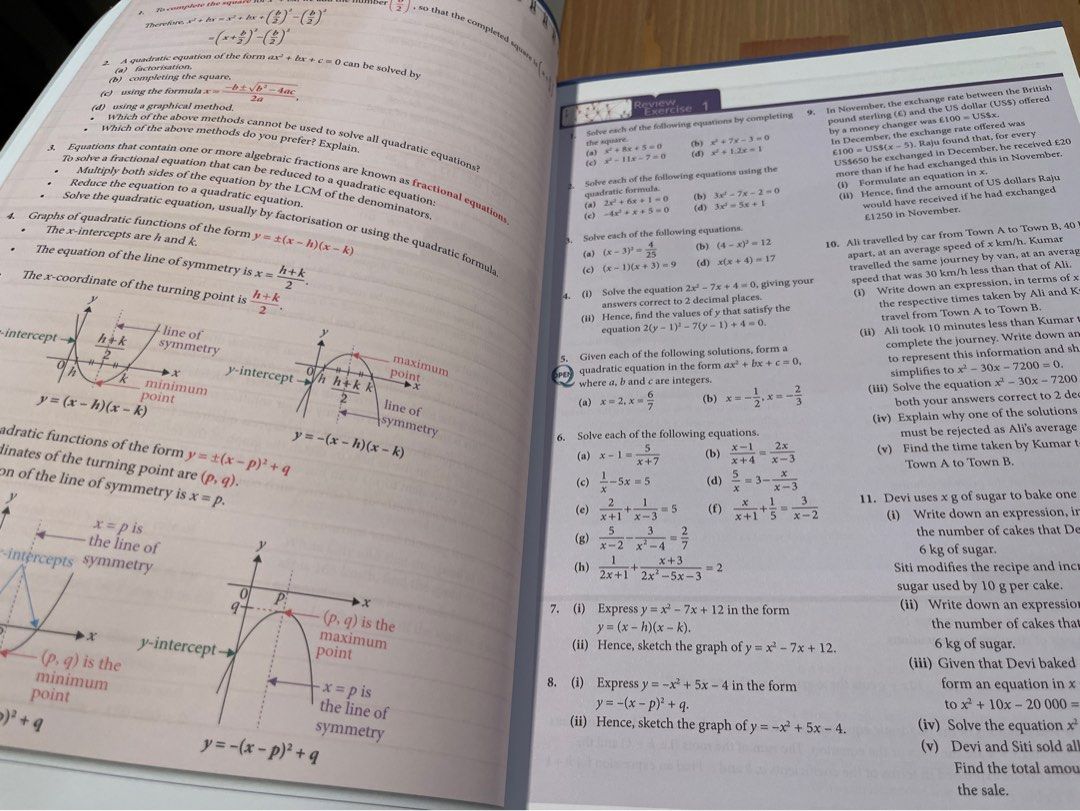 1. To complete the square for x² + bx, we add the number (b/2)², so that the completed square is
Therefore, x² + bx = x² + bx + (b/2)² − (b/2)²
= (x + b/2)² − (b/2)²
2. A quadratic equation of the form ax² + bx + c = 0 can be solved by
(a) factorisation,
(b) completing the square,
(c) using the formula x = (−b ± √(b² − 4ac))/2a,
(d) using a graphical method.
• Which of the above methods cannot be used to solve all quadratic equations?
• Which of the above methods do you prefer? Explain.
3. Equations that contain one or more algebraic fractions are known as fractional equations.
To solve a fractional equation that can be reduced to a quadratic equation:
• Multiply both sides of the equation by the LCM of the denominators.
• Reduce the equation to a quadratic equation.
• Solve the quadratic equation, usually by factorisation or using the quadratic formula.
4. Graphs of quadratic functions of the form y = ±(x − h)(x − k)
• The x-intercepts are h and k.
• The equation of the line of symmetry is x = (h+k)/2.
The x-coordinate of the turning point is (h+k)/2.
y
-intercept
h+k
2
line of
symmetry
0
h
k
x
minimum
point
y = (x − h)(x − k)
y
y-intercept
0
h
h+k
2
k
x
maximum
point
line of
symmetry
y = −(x − h)(x − k)
adratic functions of the form y = ±(x − p)² + q
dinates of the turning point are (p, q).
on of the line of symmetry is x = p.
y
x = p is
the line of
symmetry
-intercepts
x
(p, q) is the
minimum
point
)² + q
y
0
p
x
q
(p, q) is the
maximum
point
y-intercept
x = p is
the line of
symmetry
y = −(x − p)² + q
Review
Exercise 1
1. Solve each of the following equations by completing
the square.
(a) x² + 8x + 5 = 0 (b) x² + 7x − 3 = 0
(c) x² − 11x − 7 = 0 (d) x² + 1.2x = 1
2. Solve each of the following equations using the
quadratic formula.
(a) 2x² + 6x + 1 = 0 (b) 3x² − 7x − 2 = 0
(c) −4x² + x + 5 = 0 (d) 3x² = 5x + 1
3. Solve each of the following equations.
(a) (x − 3)² = 4/25 (b) (4 − x)² = 12
(c) (x − 1)(x + 3) = 9 (d) x(x + 4) = 17
4. (i) Solve the equation 2x² − 7x + 4 = 0, giving your
answers correct to 2 decimal places.
(ii) Hence, find the values of y that satisfy the
equation 2(y − 1)² − 7(y − 1) + 4 = 0.
5. Given each of the following solutions, form a
OPEN quadratic equation in the form ax² + bx + c = 0,
where a, b and c are integers.
(a) x = 2, x = 6/7 (b) x = −1/2, x = −2/3
6. Solve each of the following equations.
(a) x − 1 = 5/(x+7) (b) (x−1)/(x+4) = 2x/(x−3)
(c) 1/x − 5x = 5 (d) 5/x = 3 − x/(x−3)
(e) 2/(x+1) + 1/(x−3) = 5 (f) x/(x+1) + 1/5 = 3/(x−2)
(g) 5/(x−2) − 3/(x²−4) = 2/7
(h) 1/(2x+1) + (x+3)/(2x²−5x−3) = 2
7. (i) Express y = x² − 7x + 12 in the form
y = (x − h)(x − k).
(ii) Hence, sketch the graph of y = x² − 7x + 12.
8. (i) Express y = −x² + 5x − 4 in the form
y = −(x − p)² + q.
(ii) Hence, sketch the graph of y = −x² + 5x − 4.
9. In November, the exchange rate between the British
pound sterling (£) and the US dollar (US$) offered
by a money changer was £100 = US$x.
In December, the exchange rate offered was
£100 = US$(x − 5). Raju found that, for every
US$650 he exchanged in December, he received £20
more than if he had exchanged this in November.
(i) Formulate an equation in x.
(ii) Hence, find the amount of US dollars Raju
would have received if he had exchanged
£1250 in November.
10. Ali travelled by car from Town A to Town B, 40
apart, at an average speed of x km/h. Kumar
travelled the same journey by van, at an averag
speed that was 30 km/h less than that of Ali.
(i) Write down an expression, in terms of x
the respective times taken by Ali and K
travel from Town A to Town B.
(ii) Ali took 10 minutes less than Kumar t
complete the journey. Write down an
to represent this information and sh
simplifies to x² − 30x − 7200 = 0.
(iii) Solve the equation x² − 30x − 7200
both your answers correct to 2 dec
(iv) Explain why one of the solutions
must be rejected as Ali's average
(v) Find the time taken by Kumar t
Town A to Town B.
11. Devi uses x g of sugar to bake one
(i) Write down an expression, in
the number of cakes that De
6 kg of sugar.
Siti modifies the recipe and incr
sugar used by 10 g per cake.
(ii) Write down an expression
the number of cakes that
6 kg of sugar.
(iii) Given that Devi baked
form an equation in x
to x² + 10x − 20 000 =
(iv) Solve the equation x²
(v) Devi and Siti sold all
Find the total amou
the sale.